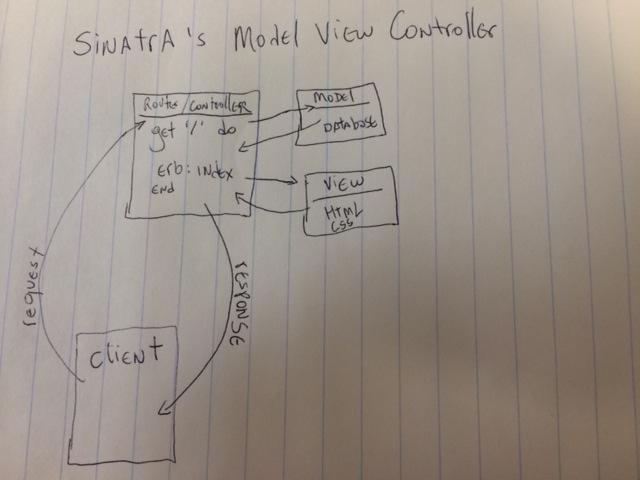 SINAtrA's Model View Controller
Routes/Controller
get '/' do
erb: index
END
MODEL
DATABASE
VIEW
HTML
CSS
request
RESPONSE
CLIENT